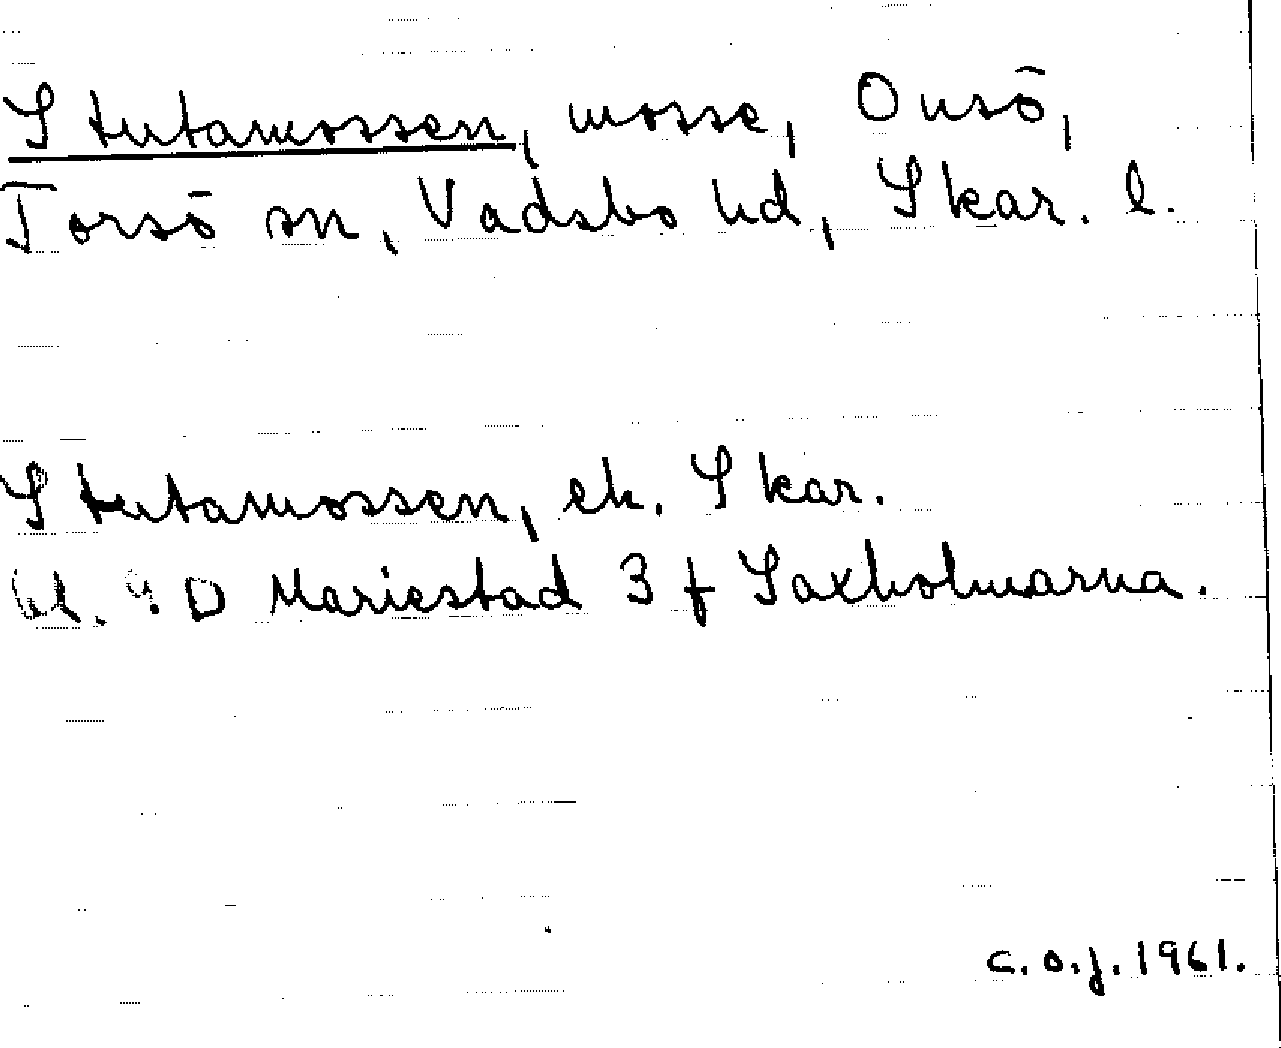 Stutamossen, mosse, Onsö,
Torsö sn, Vadsbo hd, Skar. l.
Stutamossen, ek. Skar.
bl. 9: D Mariestad 3 f Saxholmarna.
c.o.j. 1961.